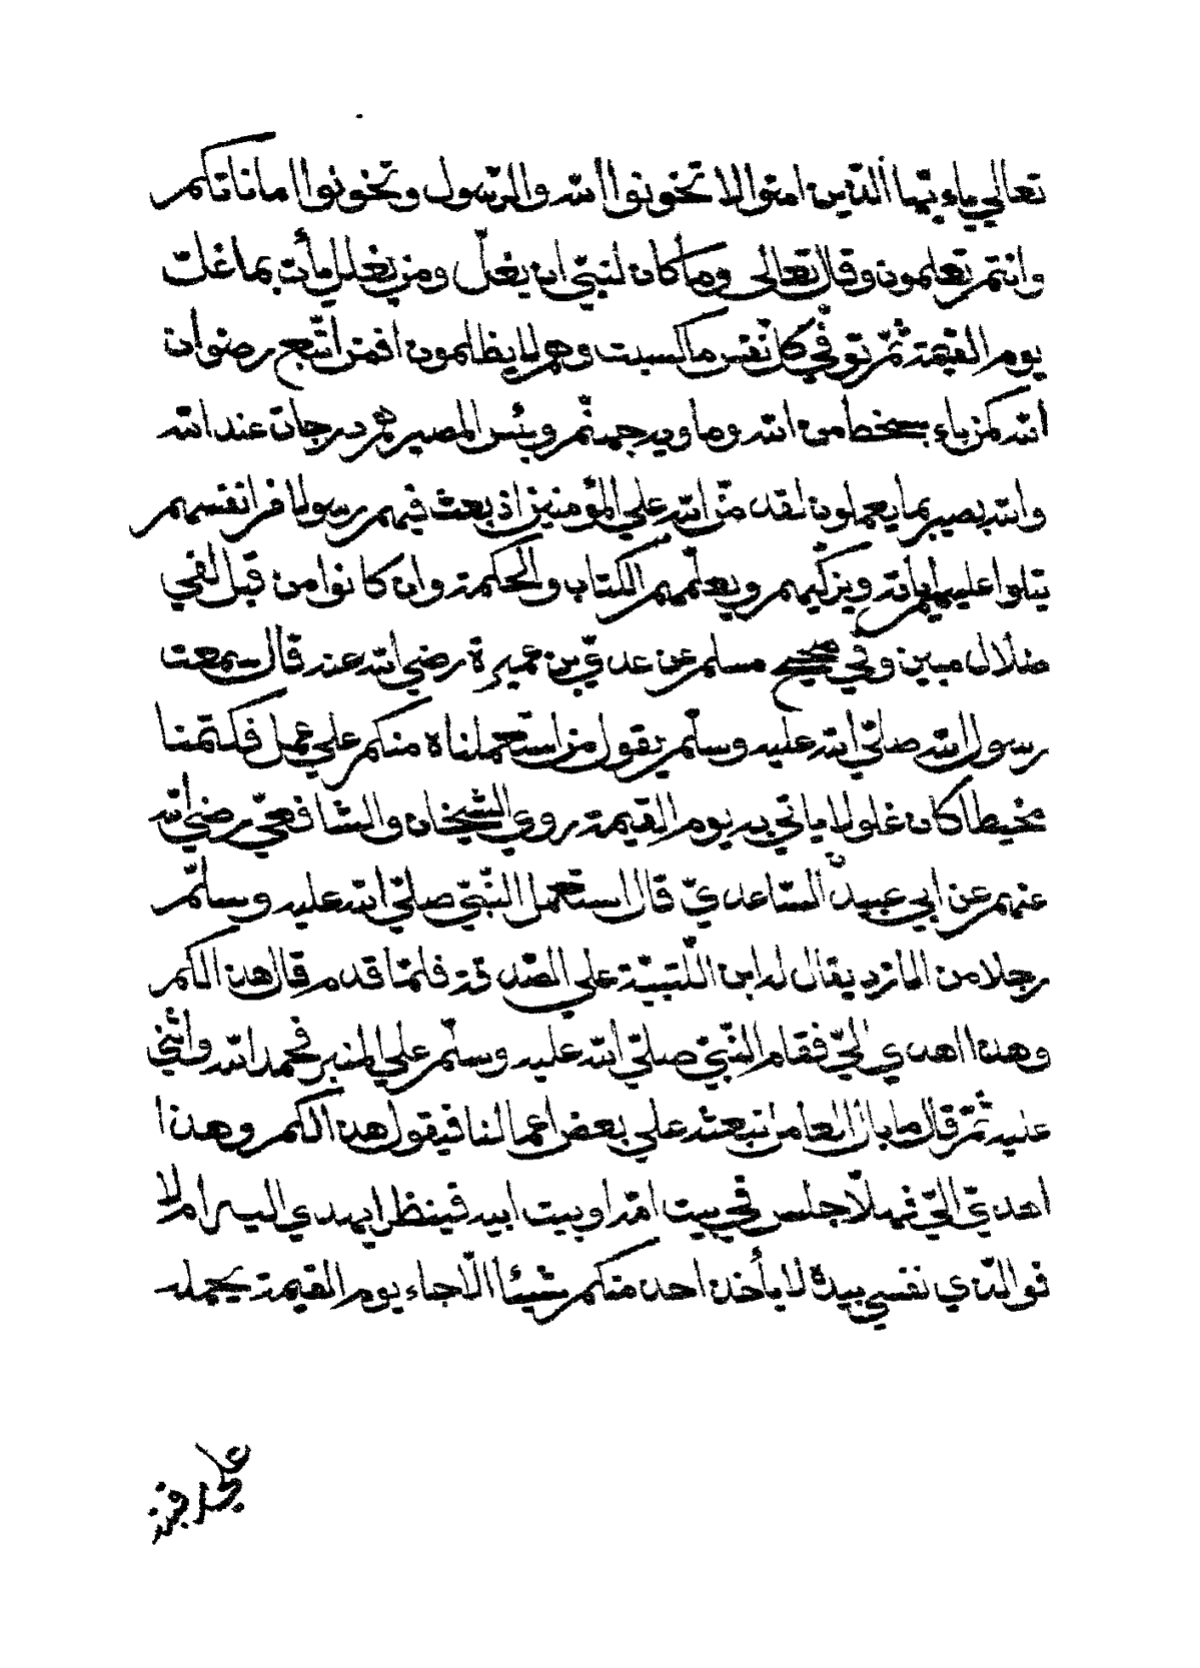 تعالي ياء يّها الّذين امنوا لا تخونوا الله والرّسول وتخونوا اماناتكم
وانتم تعلمون وقال تعالى وما كان لنبيّ ان يغلّ ومن يغلل يأت بما غلّ
يوم القيمة ثمّ توفّي كلّ نفس ما كسبت وهم لا يظلمون افمن اتّبع رضوان
الله كمن باء بسخط من الله وماويه جهنّم وبئس المصير هم درجات عند الله
والله بصير بما يعملون لقد منّ الله علي المؤمنين اذ بعث فيهم رسولا من انفسهم
يتلوا عليهم اياته ويزكّيهم ويعلّمهم الكتاب والحكمة وان كانوا من قبل لفي
ضلال مبين وفي صحيح مسلم عن عديّ بن عميرة رضي الله عنه قال سمعت
رسول الله صلّي الله عليه وسلّم يقول من استعملناه منكم علي عمل فكتمنا
مخيطا كان غلولا ياتي به يوم القيمة روي الشّيخان والشّافعيّ رضي الله
عنهم عن ابي عبيد السّاعديّ قال استعمل النّبيّ صلّي الله عليه وسلّم
رجلا من الازد يقال له ابن اللّتبيّة علي الصّدقة فلمّا قدم قال هذا لكم
وهذا اهدي اليّ فقام النّبيّ صلّي الله عليه وسلّم علي المنبر فحمد الله واثني
عليه ثمّ قال ما بال العامل نبعثه علي بعض اعمالنا فيقول هذا لكم وهذا
اهدي اليّ فهلّا جلس في بيت امّه او بيت ابيه فينظر ايهدي اليه ام لا
فوالّذي نفسي بيده لا يأخذ احد منكم شيئا الّا جاء يوم القيمة يحمله